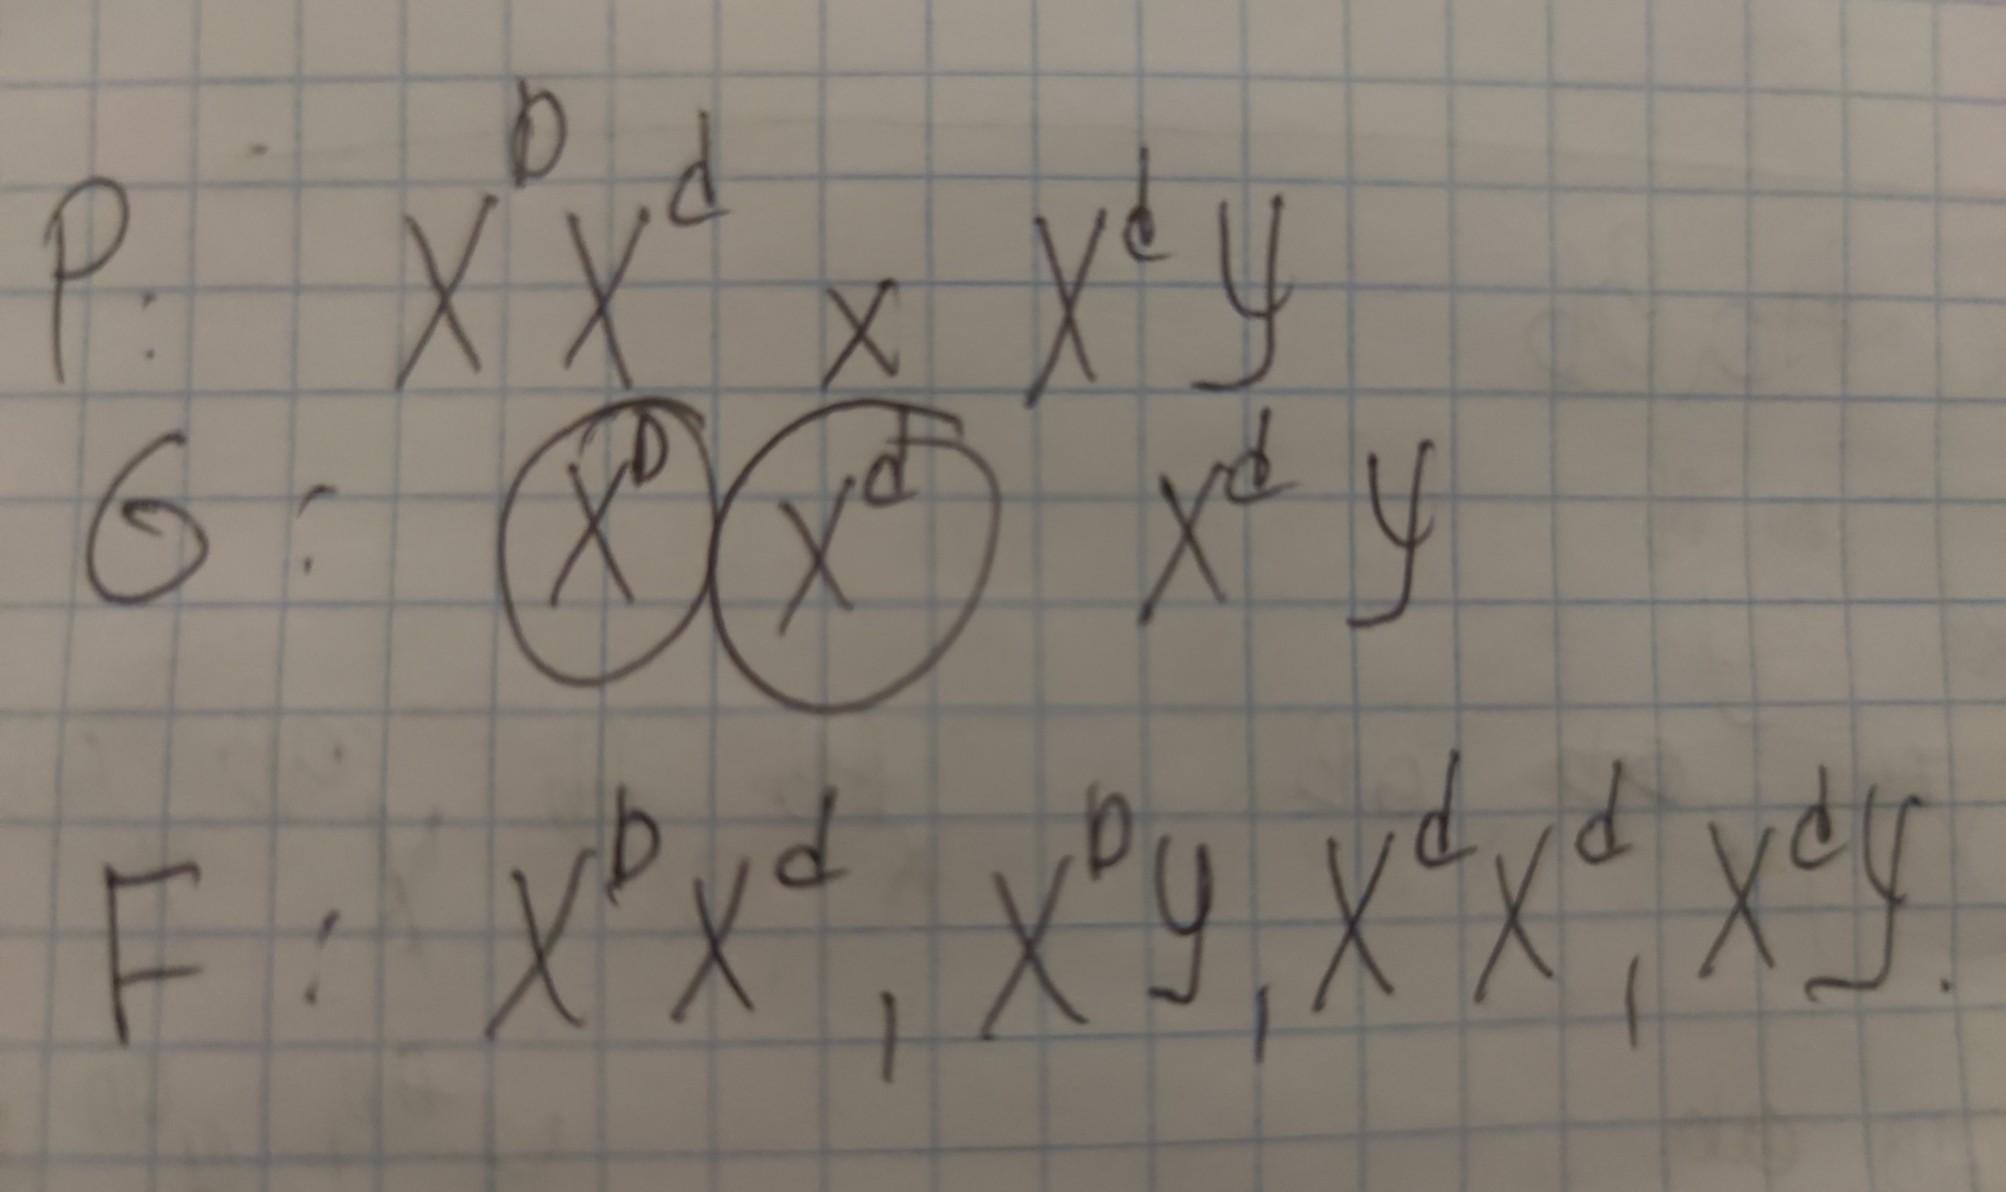 P: X^D X^d x X^d y
G: X^D X^d X^d y
F: X^D X^d, X^D y, X^d X^d, X^d y.